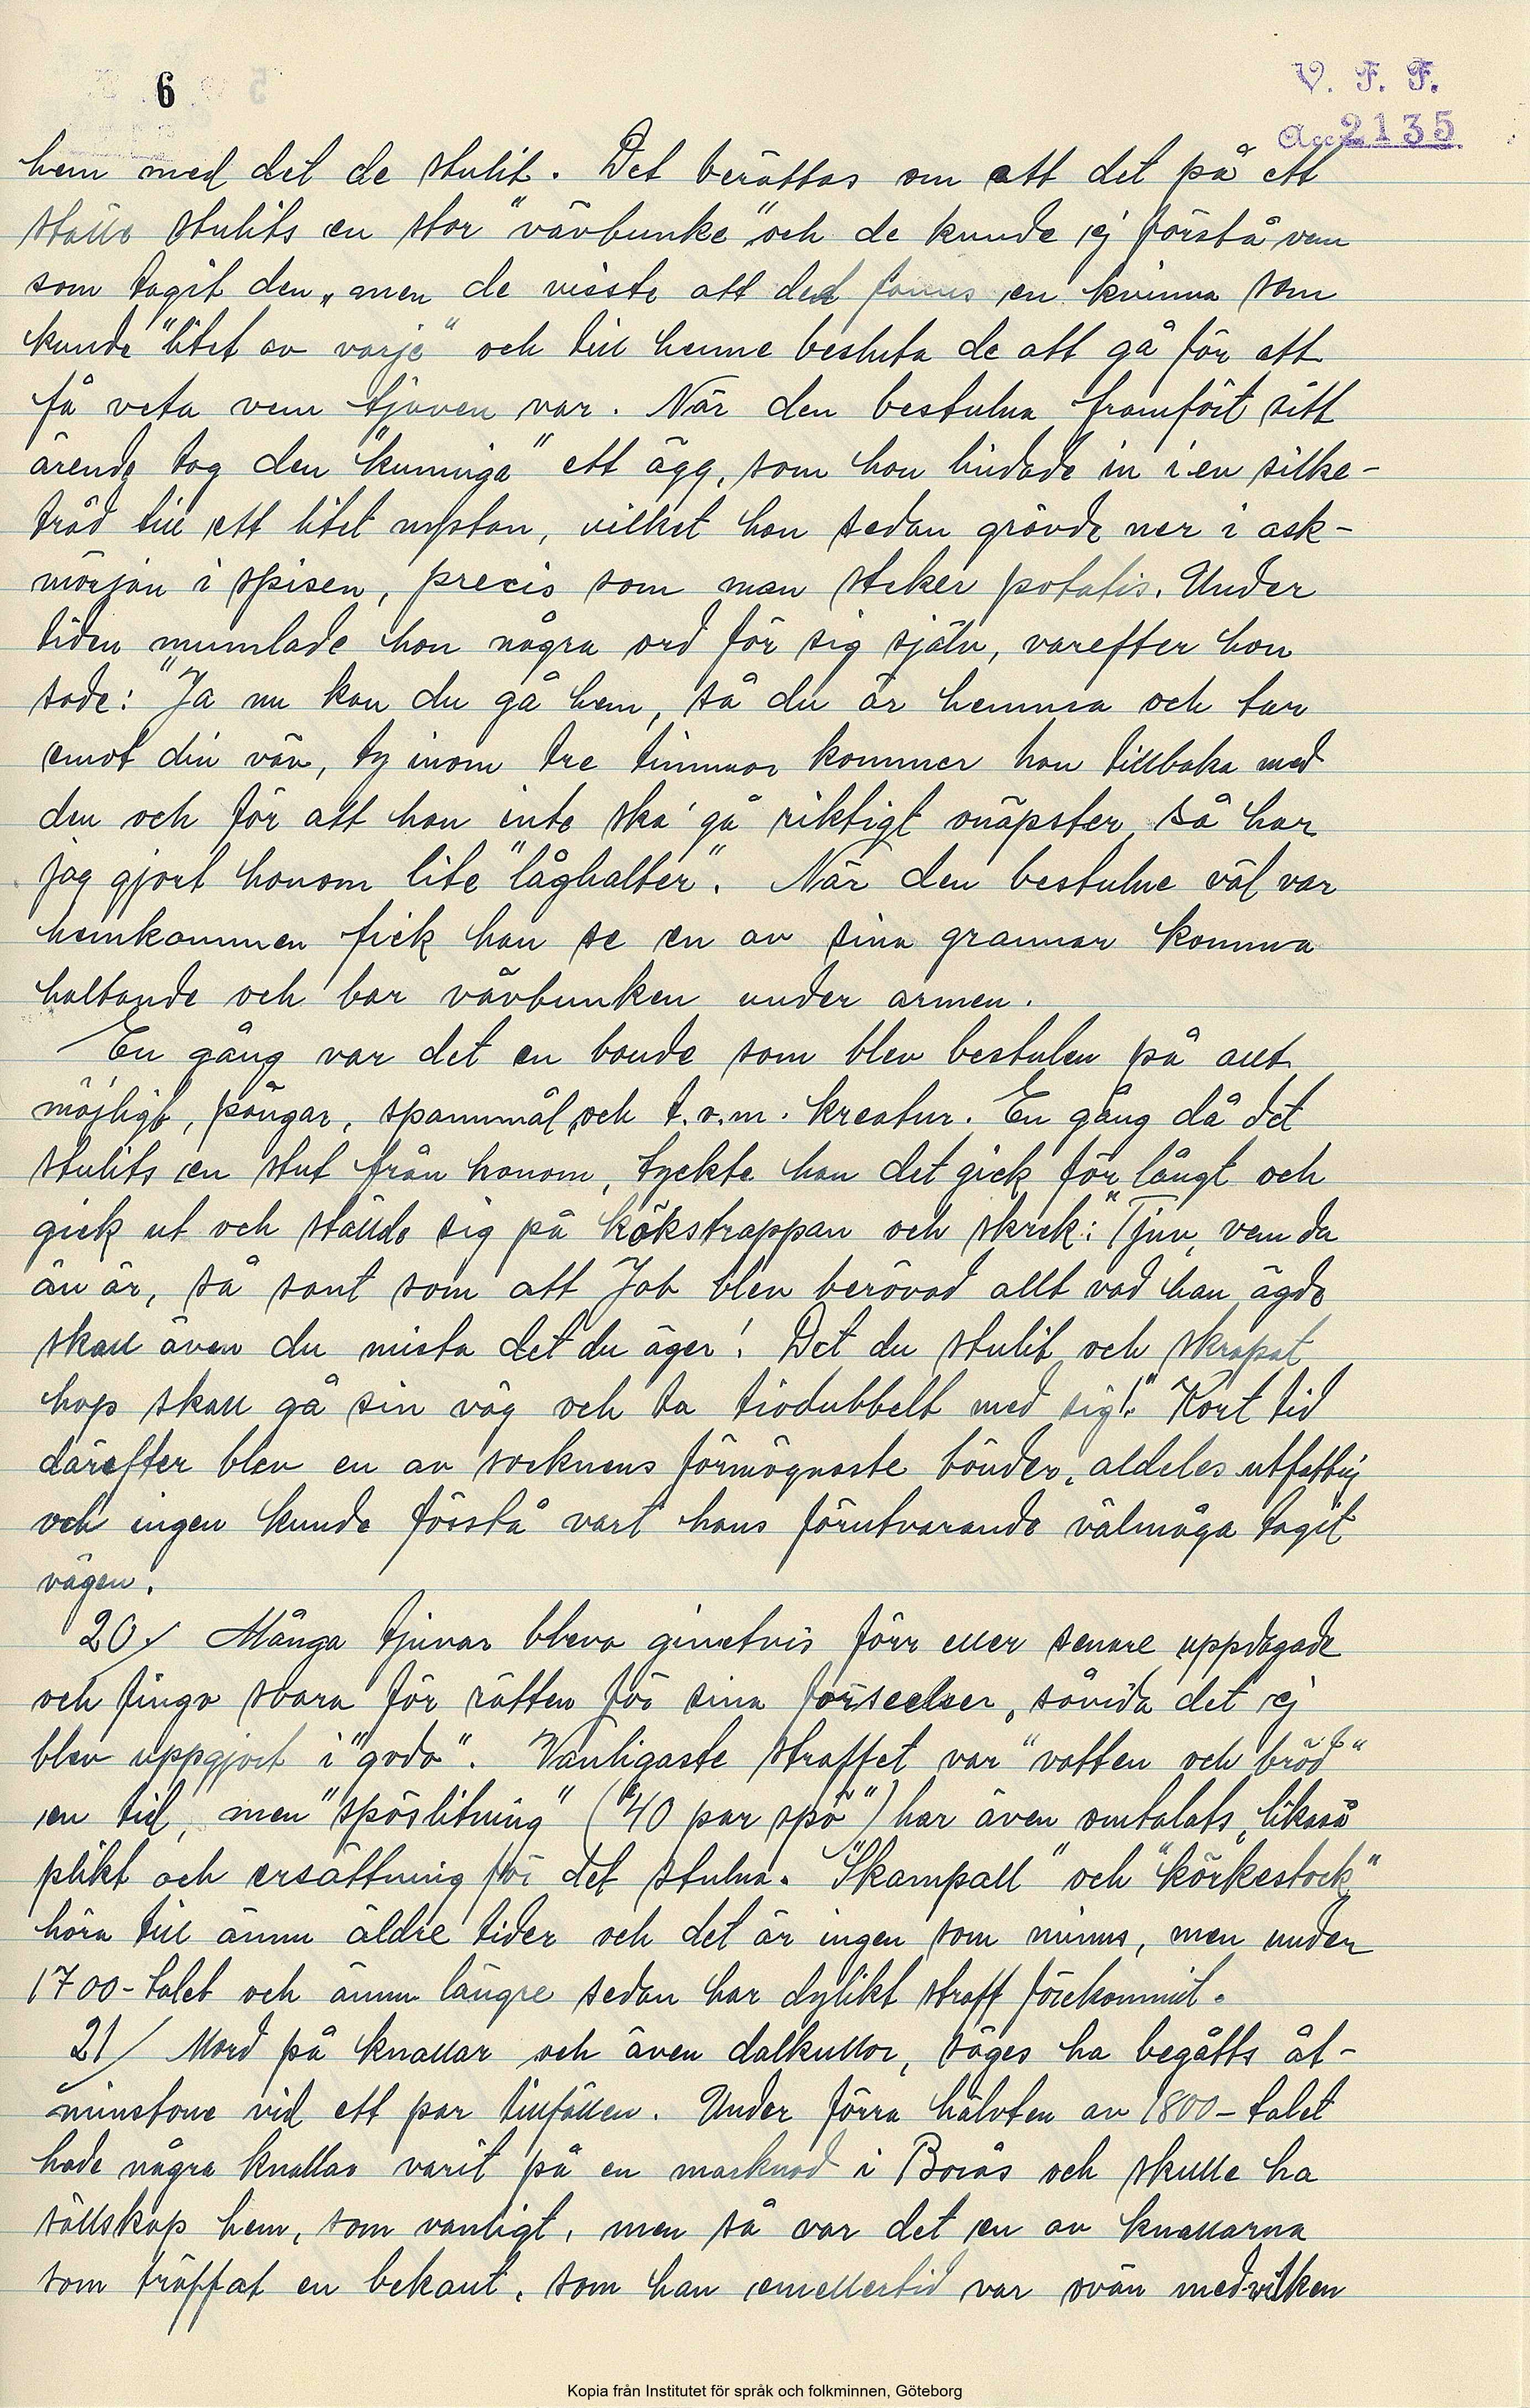 6
V. F. F.
Acc 2135
hem med det de stulit. Det berättas om att det på ett
ställe stulits en stor "vävbunke" och de kunde ej förstå vem
som tagit den, men de visste att det fanns en kvinna som
kunde "litet av varje" och till henne besluta de att gå för att
få veta vem tjuven var. När den bestulna framfört sitt
ärende tog den "kunniga" ett ägg, som hon lindade in i en silke-
tråd till ett litet nystan, vilket hon sedan grävde ner i ask-
mörjan i spisen, precis som man steker potatis. Under
tiden mumlade hon några ord för sig själv, varefter hon
sade: "Ja nu kan du gå hem, så du är hemma och tar
emot din väv, ty inom tre timmar kommer han tillbaka med
den och för att han inte ska' gå riktigt onäpster, så har
jag gjort honom lite "låghalter". När den bestulne väl var
hemkommen fick han se en av sina grannar komma
haltande och bar vävbunken under armen.
En gång var det en bonde som blev bestulen på allt
möjligt, pängar, spannmål, och t.o.m. kreatur. En gång då det
stulits en stut från honom, tyckte han det gick för långt och
gick ut och ställde sig på kökstrappan och skrek: "Tjuv, vem du
än är, så sant som att Job blev berövad allt vad han ägde
skall även du mista det du äger! Det du stulit och skrapat
hop skall gå sin väg och ta tiodubbelt med sig!" Kort tid
därefter blev en av socknens förmögnaste bönder, aldeles utfattig
och ingen kunde förstå vart hans förutvarande välmåga tagit
vägen.
20/ Många tjuvar bleva givetvis förr eller senare uppdagade
och fingo svara för rätten för sina förseelser, såvida det ej
blev uppgjort i "godo". Vanligaste straffet var "vatten och bröd"
en tid, men "spöslitning" ("40 par spö") har även omtalats, likaså
plikt och ersättning för det stulna. "Skampall" och "körkestock"
höra till ännu äldre tider och det är ingen som minns, men under
1700-talet och ännu längre sedan har dylikt straff förekommit.
21/ Mord på knallar och även dalkullor, säges ha begåtts åt-
minstone vid ett par tillfällen. Under förra hälvten av 1800-talet
hade några knallar varit på en marknad i Borås och skulle ha
sällskap hem, som vanligt, men så var det en av knallarna
som träffat en bekant, som han emellertid var ovän med vilken
Kopia från Institutet för språk och folkminnen, Göteborg